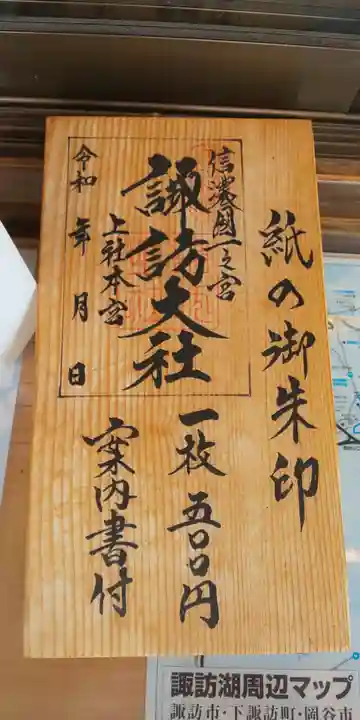 紙の御朱印
信濃國一之宮
諏訪大社
上社本宮
令和 年 月 日
一枚 五〇〇円
案内書付
諏訪湖周辺マップ
諏訪市・下諏訪町・岡谷市